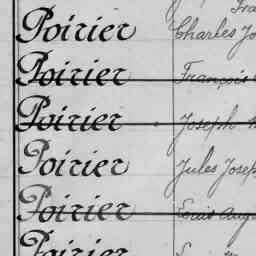 Poirier Charles Jo
Poirier François
Poirier Joseph
Poirier Jules Josep
Poirier Louis Aug
Poirier